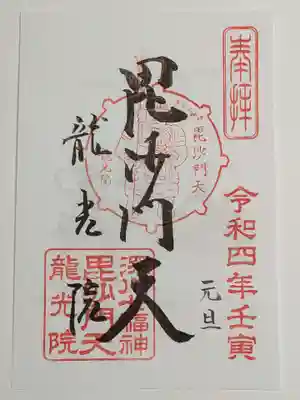 奉拝
令和四年壬寅
元旦
毘沙門天
毘沙門天
龍光院
深川七福神
毘沙門天
龍光院